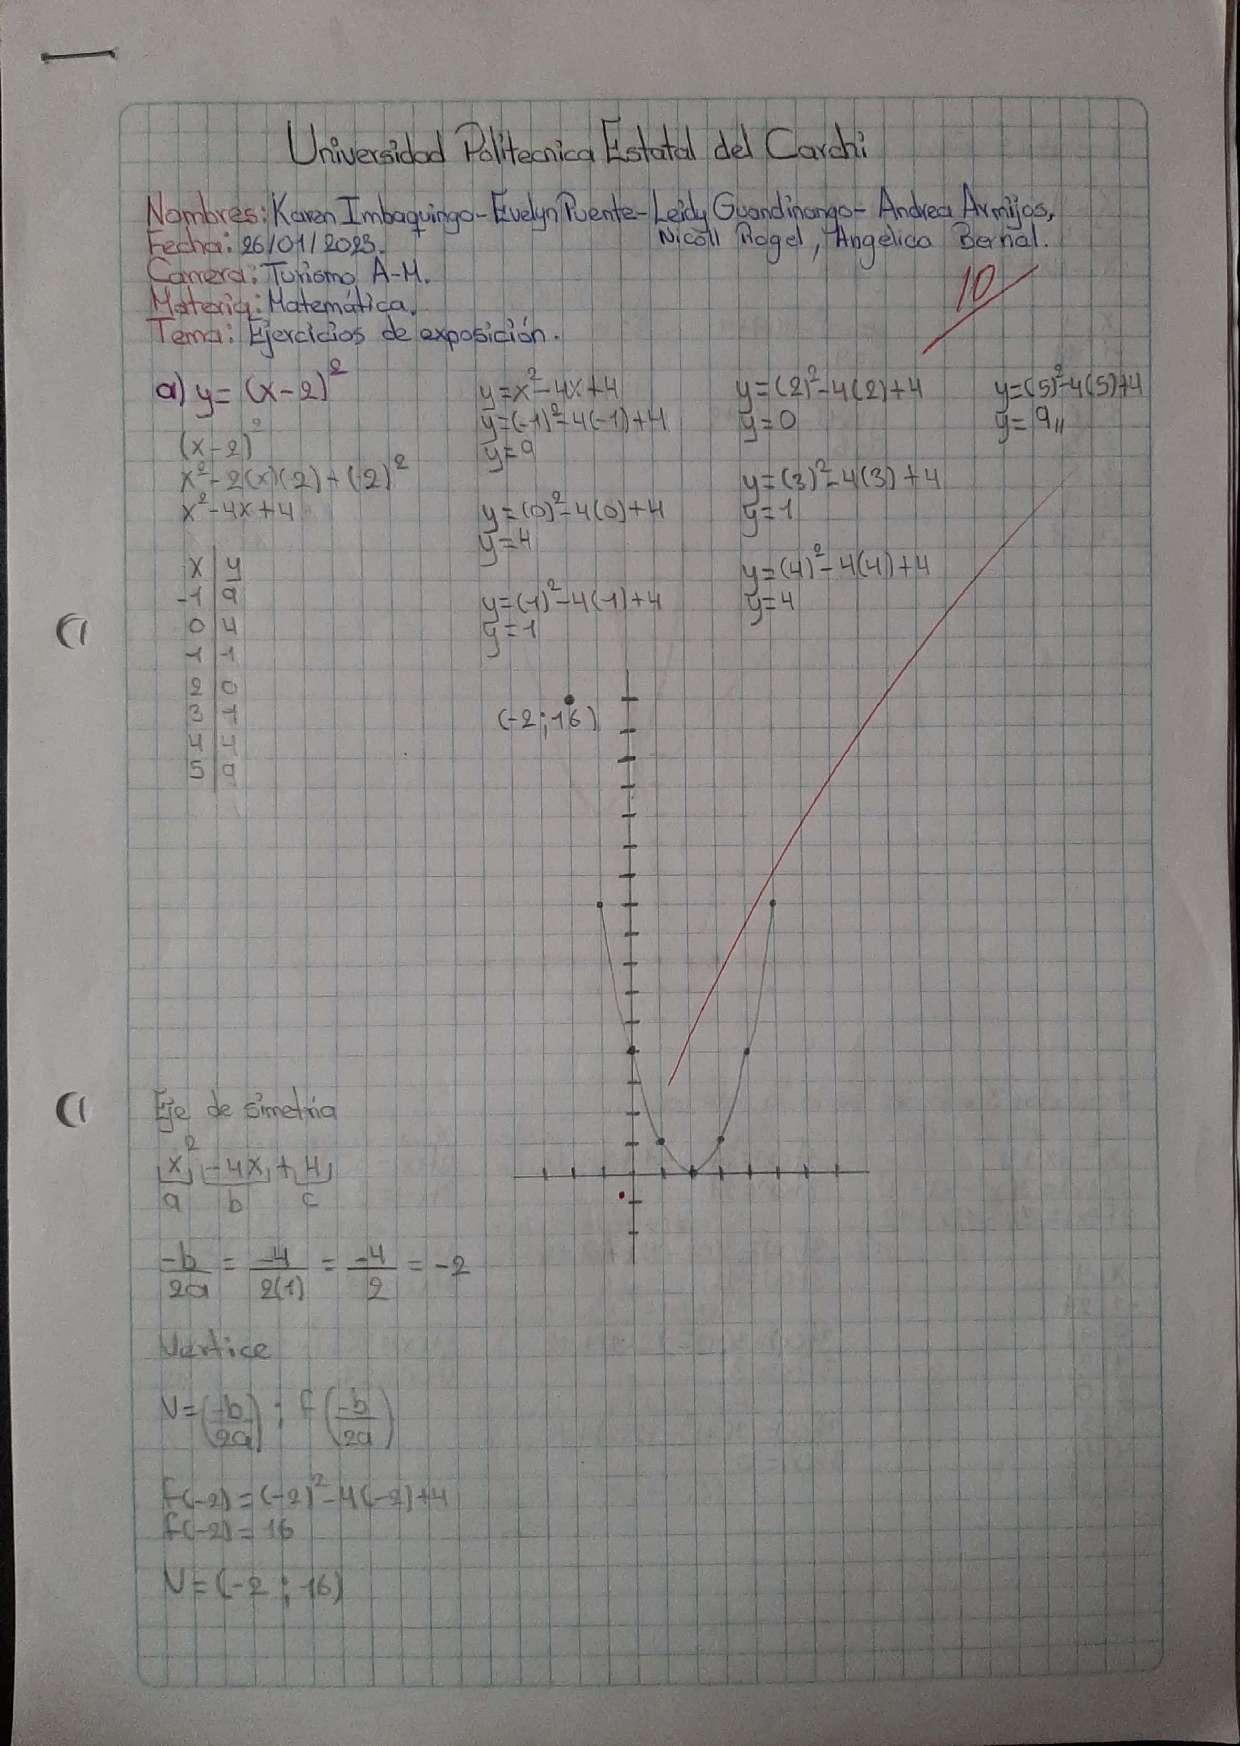 Universidad Politecnica Estatal del Carchi
Nombres: Karen Imbaquingo - Evelyn Puente - Leidy Guandinango - Andrea Armijos,
Nicoll Rogel, Angelica Bernal.
Fecha: 26/01/2023.
Carrera: Turismo A-M.
Materia: Matemática.
Tema: Ejercicios de exposición.
10
a) y = (x-2)²
(x-2)²
x²-2(x)(2)+(2)²
x²-4x+4
x y
-1 9
0 4
1 1
2 0
3 1
4 4
5 9
y=x²-4x+4
y=(-1)²-4(-1)+4
y=9
y=(0)²-4(0)+4
y=4
y=(1)²-4(1)+4
y=1
y=(2)²-4(2)+4
y=0
y=(3)²-4(3)+4
y=1
y=(4)²-4(4)+4
y=4
y=(5)²-4(5)+4
y=9
(-2;16)
Eje de simetria
x² -4x + 4
a b c
-b/2a = -4/2(1) = -4/2 = -2
Vertice
V=(-b/2a); f(-b/2a)
f(-2)=(-2)²-4(-2)+4
f(-2)=16
V=(-2;16)